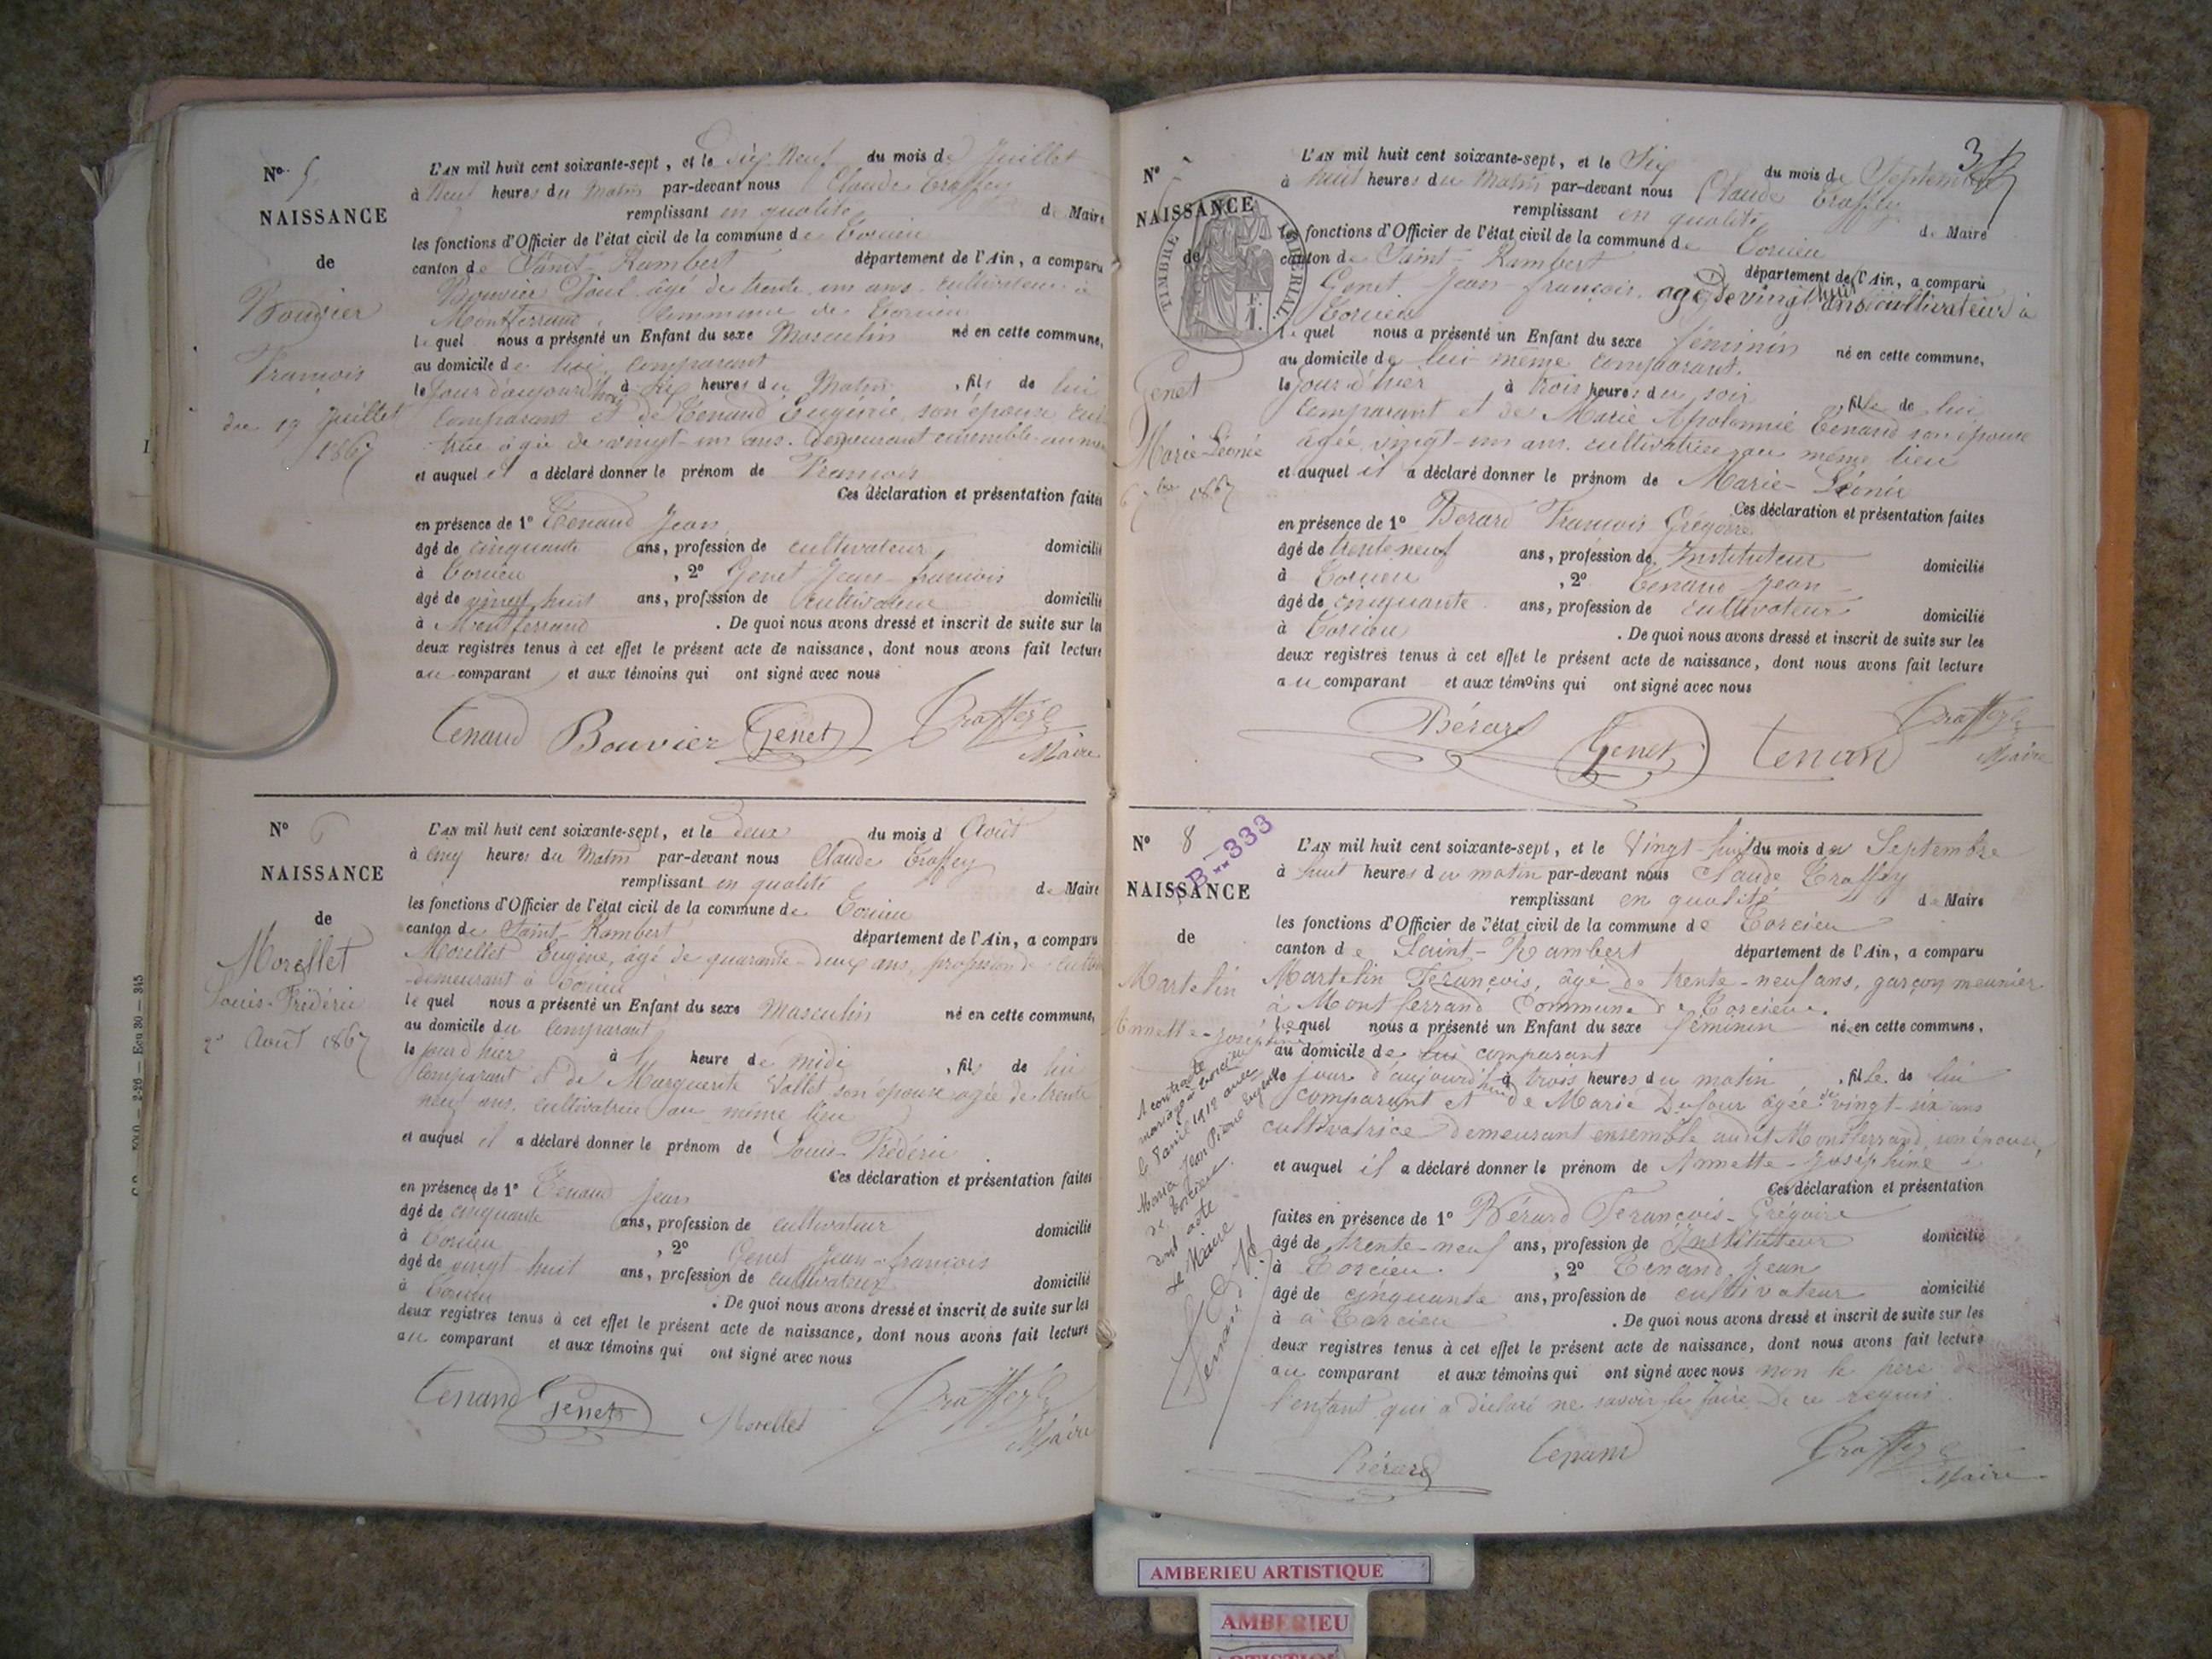 Nº 5
NAISSANCE
de
Bouvier
François
du 19 Juillet
1867
L'AN mil huit cent soixante-sept, et le dix neuf du mois de Juillet
à neuf heures du matin par-devant nous Claude Traffey
remplissant en qualité de Maire
les fonctions d'Officier de l'état civil de la commune de Torcieu
canton de Saint-Rambert département de l'Ain, a comparu
Bouvier âgé de trente un ans cultivateur à
Montferrand, Commune de Torcieu
lequel nous a présenté un Enfant du sexe Masculin né en cette commune,
au domicile de lui comparant
le jour d'aujourd'hui à six heures du Matin, fils de lui
comparant et de Tenand Eugénie son épouse
âgée de vingt-un ans. demeurant ensemble
et auquel il a déclaré donner le prénom de François
Ces déclaration et présentation faites
en présence de 1º Tenand Jean
âgé de cinquante ans, profession de cultivateur, domicilié
à Torcieu, 2º Genet Jean-françois
âgé de vingt huit ans, profession de cultivateur domicilié
à Montferrand. De quoi nous avons dressé et inscrit de suite sur les
deux registres tenus à cet effet le présent acte de naissance, dont nous avons fait lecture
au comparant et aux témoins qui ont signé avec nous
Tenand Bouvier Genet Traffey
Maire
Nº 6
NAISSANCE
de
Morellet
Louis-Frédéric
2 Août 1867
L'AN mil huit cent soixante-sept, et le deux du mois d Août
à cinq heures du Matin par-devant nous Claude Traffey
remplissant en qualité de Maire
les fonctions d'Officier de l'état civil de la commune de Torcieu
canton de Saint-Rambert département de l'Ain, a comparu
Morellet Eugène, âgé de quarante-deux ans, profession de
demeurant à Torcieu
lequel nous a présenté un Enfant du sexe Masculin né en cette commune,
au domicile du comparant
le jour d'hier à heure de midi, fils de lui
comparant et de Marguerite Vallet son épouse agée de trente
neuf ans, cultivatrice au même lieu
et auquel il a déclaré donner le prénom de Louis-Frédéric
Ces déclaration et présentation faites
en présence de 1º Tenand Jean
âgé de cinquante ans, profession de cultivateur domicilié
à Torcieu, 2º Genet Jean-françois
âgé de vingt huit ans, profession de cultivateur domicilié
à Torcieu. De quoi nous avons dressé et inscrit de suite sur les
deux registres tenus à cet effet le présent acte de naissance, dont nous avons fait lecture
au comparant et aux témoins qui ont signé avec nous
Tenand Genet Morellet Traffey
Maire
Nº 7
NAISSANCE
de
TIMBRE IMPÉRIAL
F.
1.
Genet
Marie-Léonie
6 7bre 1867
L'AN mil huit cent soixante-sept, et le Six du mois de Septembre
à huit heures du Matin par-devant nous Claude Traffey
remplissant en qualité de Maire
les fonctions d'Officier de l'état civil de la commune de Torcieu
canton de Saint-Rambert département de l'Ain, a comparu
Genet Jean-françois, agé de vingt huit ans cultivateur à
Torcieu
lequel nous a présenté un Enfant du sexe féminin né en cette commune,
au domicile de lui-même comparant.
le Jour d'hier à trois heures du soir, fille de lui
comparant et de Marie Apolonnie Tenand son épouse
agée vingt-un ans. cultivatrice au même lieu
et auquel il a déclaré donner le prénom de Marie-Léonie
Ces déclaration et présentation faites
en présence de 1º Berard François Grégoire
âgé de trente neuf ans, profession de Instituteur domicilié
à Torcieu, 2º Tenand Jean
âgé de cinquante ans, profession de cultivateur domicilié
à Torcieu. De quoi nous avons dressé et inscrit de suite sur les
deux registres tenus à cet effet le présent acte de naissance, dont nous avons fait lecture
au comparant et aux témoins qui ont signé avec nous
Bérard Genet Tenand Traffey
Maire
Nº 8
B**333
NAISSANCE
de
Martelin
Annette-Joséphine
A contracté
mariage à Torcieu
le 8 avril 1912 avec
Jean Pierre
de Torcieu
dont acte
Le Maire
L'AN mil huit cent soixante-sept, et le Vingt-huit du mois de Septembre
à huit heures du matin par-devant nous Claude Traffey
remplissant en qualité de Maire
les fonctions d'Officier de l'état civil de la commune de Torcieu
canton de Saint-Rambert département de l'Ain, a comparu
Martelin François, âgé de trente-neuf ans, garçon meunier
à Montferrand, Commune de Torcieu.
lequel nous a présenté un Enfant du sexe féminin né en cette commune,
au domicile de lui comparant
le jour d'aujourd'hui à trois heures du matin, fille de lui
comparant et de Marie Dufour âgée de vingt-six ans
cultivatrice demeurant ensemble audit Montferrand, son épouse,
et auquel il a déclaré donner le prénom de Annette-Joséphine
Ces déclaration et présentation
faites en présence de 1º Bérard François-Grégoire
âgé de trente-neuf ans, profession de Instituteur domicilié
à Torcieu., 2º Tenand Jean
âgé de cinquante ans, profession de cultivateur domicilié
à à Torcieu. De quoi nous avons dressé et inscrit de suite sur les
deux registres tenus à cet effet le présent acte de naissance, dont nous avons fait lecture
au comparant et aux témoins qui ont signé avec nous non le père de
l'enfant qui a déclaré ne savoir le faire De ce requis
Bérard Tenand Traffey
Maire
AMBERIEU ARTISTIQUE
AMBERIEU
ARTISTIQUE